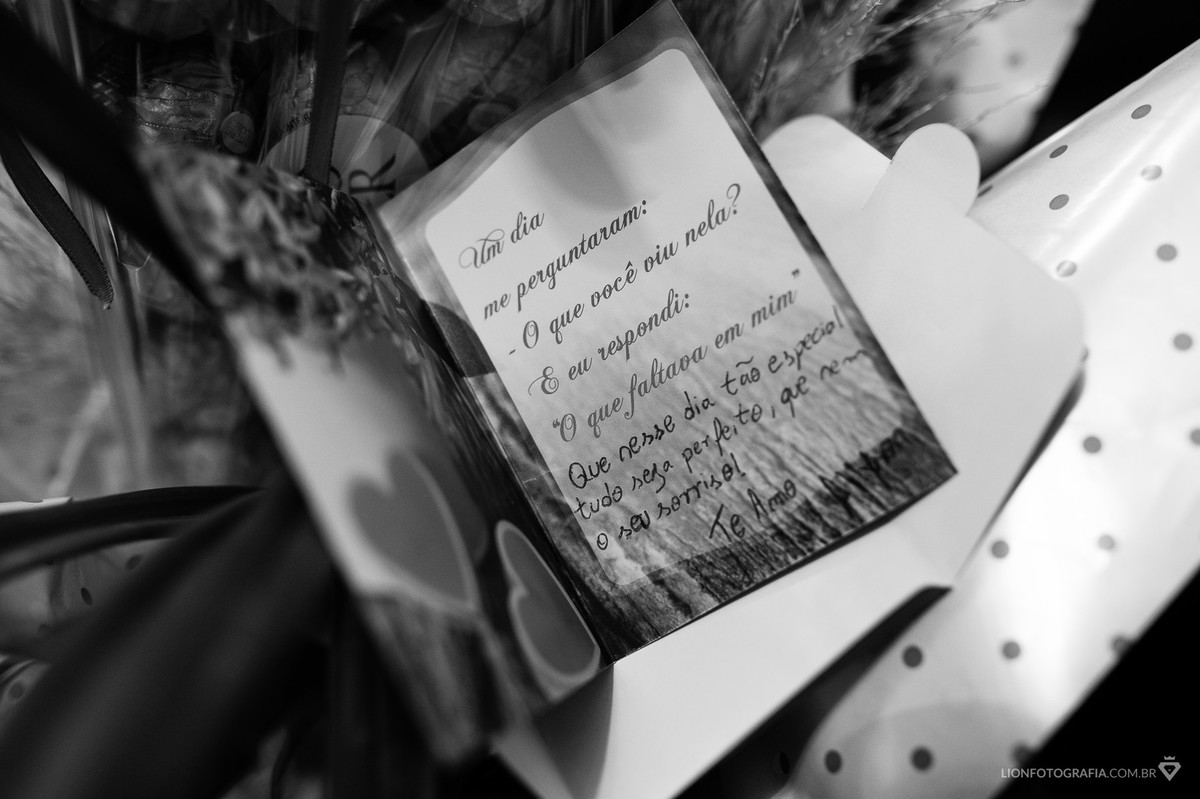 Um dia
me perguntaram:
- O que você viu nela?
E eu respondi:
“O que faltava em mim”
Que nesse dia tão especial
tudo seja perfeito, que nem
o seu sorriso!
Te Amo
LIONFOTOGRAFIA.COM.BR